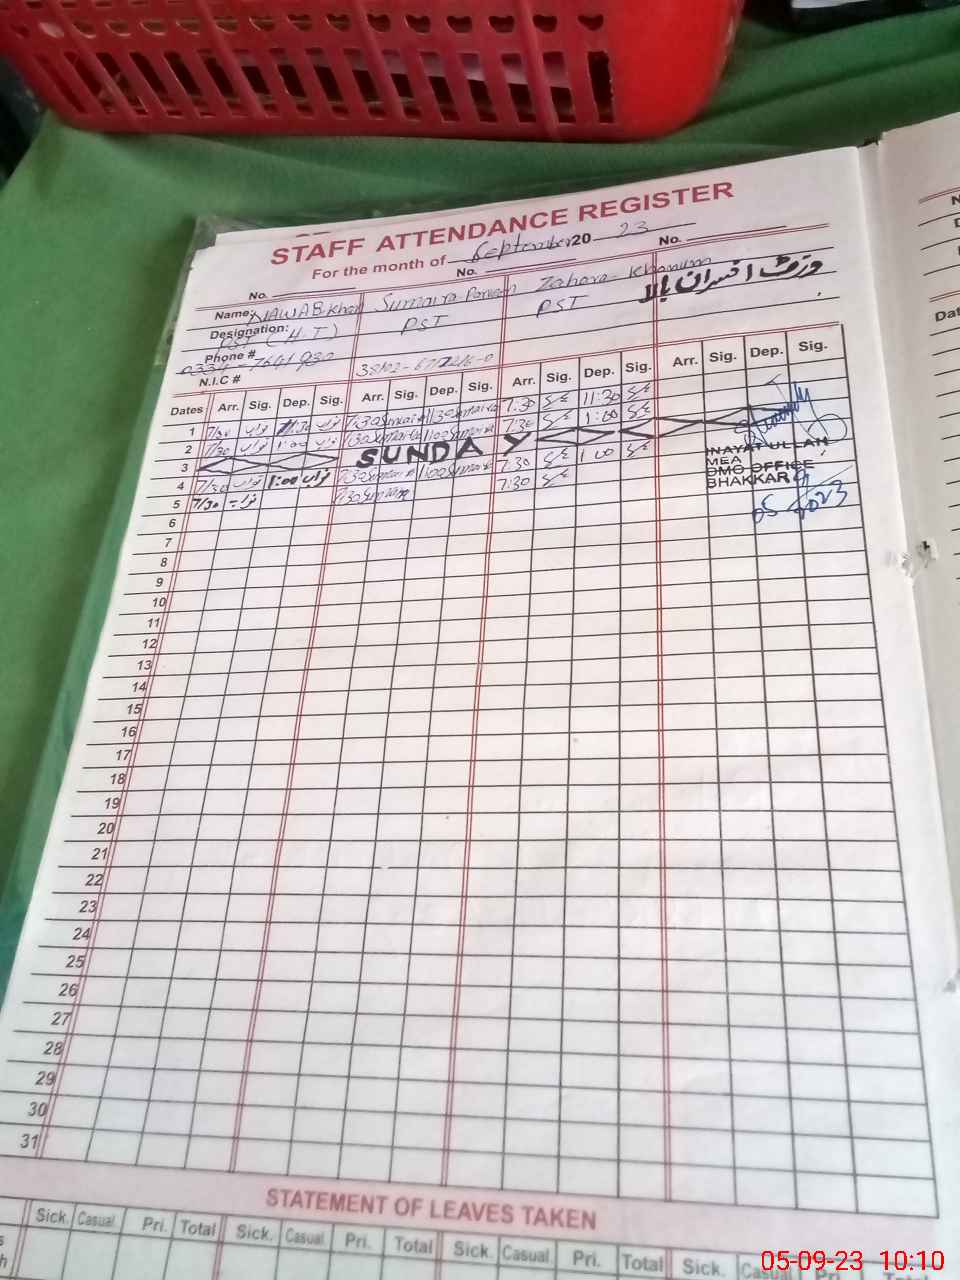 STAFF ATTENDANCE REGISTER
For the month of September 20 23
No. No. No.
Name: NAWAB Khan Sumaira Parveen Zahara Khanum وزٹ افسران بالا
Designation: PST (H.T) PST PST
Phone #
N.I.C #
Dates Arr. Sig. Dep. Sig. Arr. Sig. Dep. Sig. Arr. Sig. Dep. Sig. Arr. Sig. Dep. Sig.
1 7/30 نواب 11:30 نواب 7:30 Sumaira 11:30 Sumaira 7:30 11:30
2 7/30 نواب 1:00 نواب 7:30 Sumaira 1:00 Sumaira 7:30 1:00
3 SUNDAY
4 7/30 نواب 1:00 نواب 7:30 Sumaira 1:00 Sumaira 7:30 1:00
5 7/30 نواب 7:30 Sumaira 7:30
INAYAT ULLAH
MEA
DMO OFFICE
BHAKKAR
05 9 2023
6
7
8
9
10
11
12
13
14
15
16
17
18
19
20
21
22
23
24
25
26
27
28
29
30
31
STATEMENT OF LEAVES TAKEN
Sick. Casual Pri. Total Sick. Casual Pri. Total Sick. Casual Pri. Total Sick. Casual Pri.
05-09-23 10:10